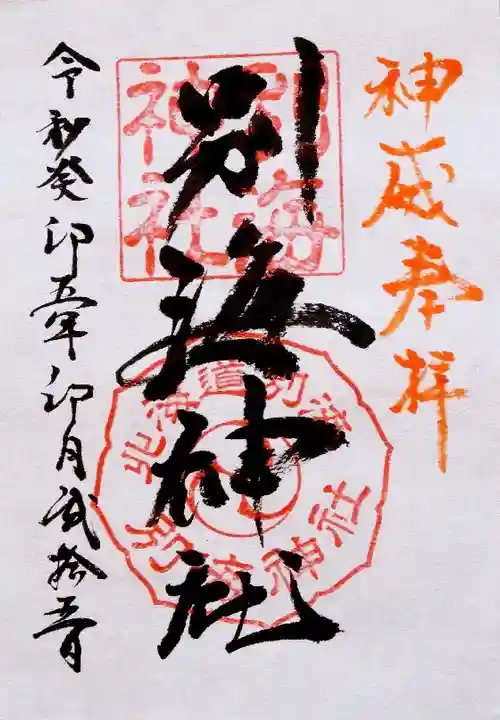 神威奉拝
別海神社
別海神社
北海道別海
別海神社
令和癸卯五年卯月弐拾五日